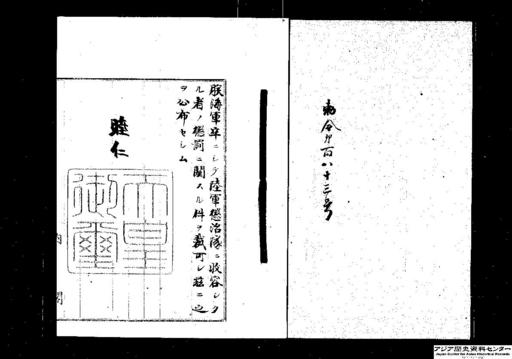 勅令第百八十三号
朕海軍卒ニシテ陸軍懲治隊ニ収容シタ
ル者ノ懲罰ニ関スル件ヲ裁可シ茲ニ之
ヲ公布セシム
睦仁
天皇
御璽
内
閣
アジア歴史資料センター
Japan Center for Asian Historical Records